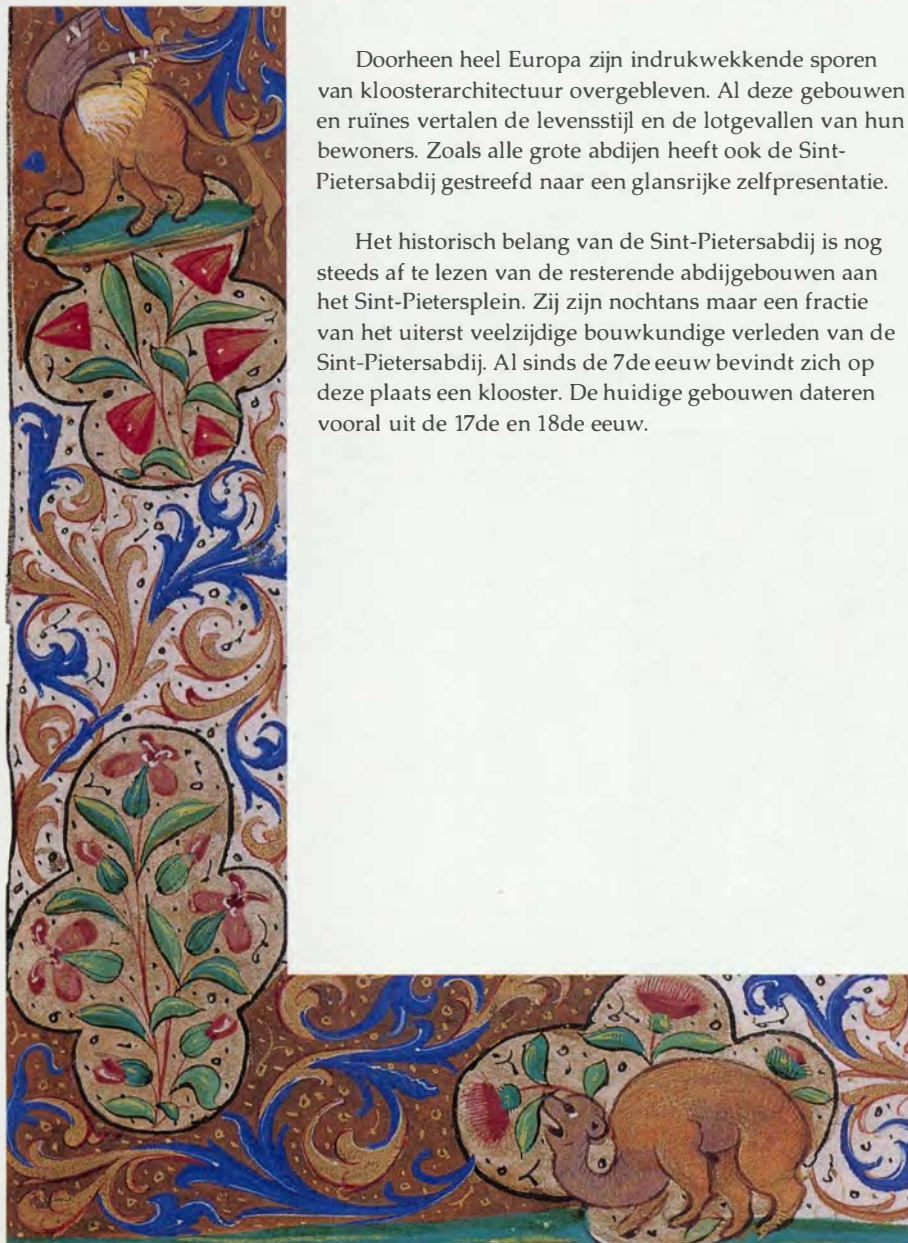 Doorheen heel Europa zijn indrukwekkende sporen
van kloosterarchitectuur overgebleven. Al deze gebouwen
en ruïnes vertalen de levensstijl en de lotgevallen van hun
bewoners. Zoals alle grote abdijen heeft ook de Sint-
Pietersabdij gestreefd naar een glansrijke zelfpresentatie.
Het historisch belang van de Sint-Pietersabdij is nog
steeds af te lezen van de resterende abdijgebouwen aan
het Sint-Pietersplein. Zij zijn nochtans maar een fractie
van het uiterst veelzijdige bouwkundige verleden van de
Sint-Pietersabdij. Al sinds de 7de eeuw bevindt zich op
deze plaats een klooster. De huidige gebouwen dateren
vooral uit de 17de en 18de eeuw.